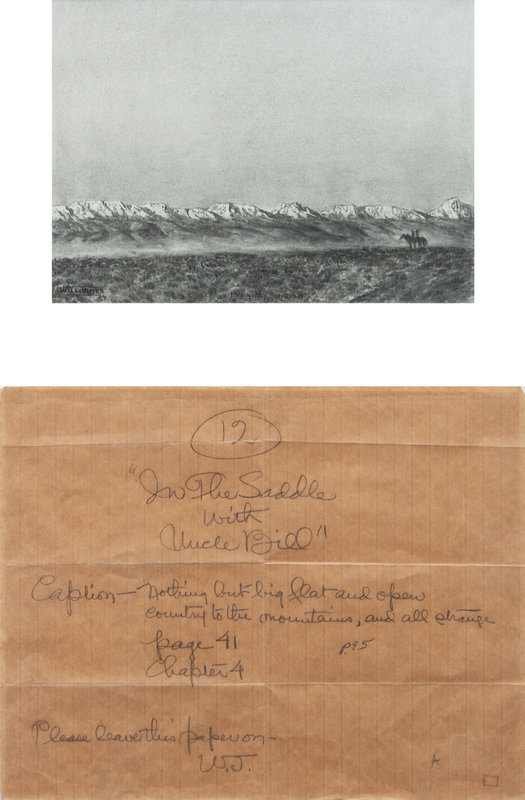 WILL JAMES
12
"In The Saddle
with
Uncle Bill"
Caption— Nothing but big flat and open
country to the mountains, and all strange
page 41
p.95
Chapter 4
Please leave this paper on—
W.J.
A